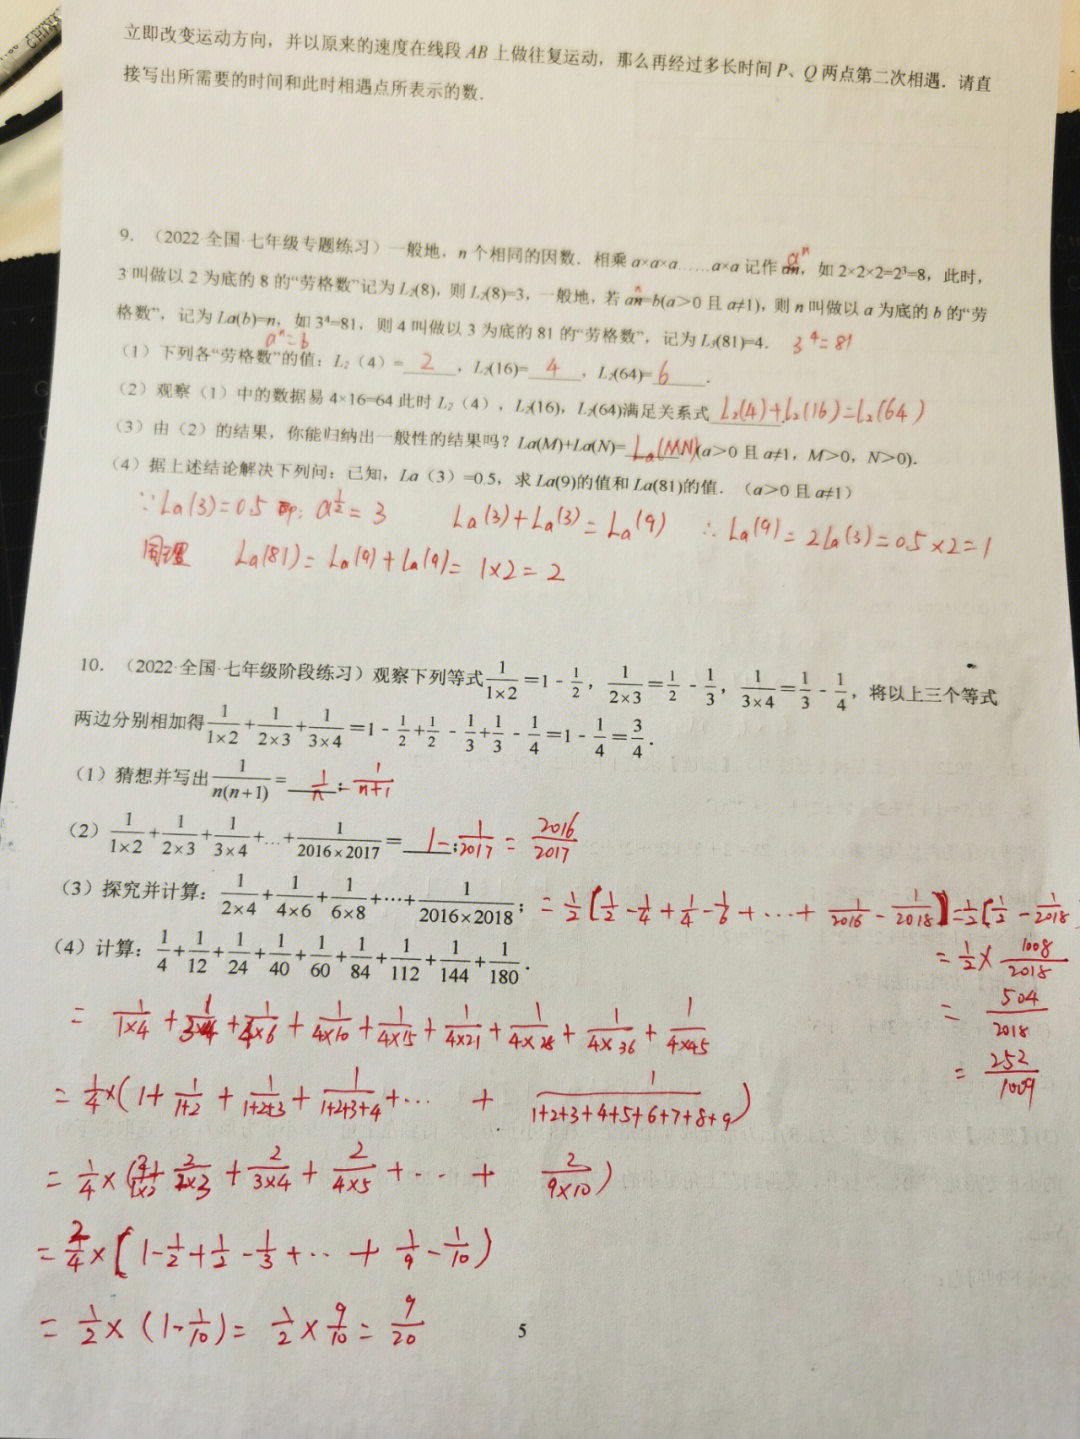 立即改变运动方向，并以原来的速度在线段 AB 上做往复运动，那么再经过多长时间 P、Q 两点第二次相遇．请直
接写出所需要的时间和此时相遇点所表示的数．
9．（2022·全国·七年级专题练习）一般地，n 个相同的因数．相乘 a×a×a……a×a 记作 an，aⁿ 如 2×2×2=2³=8，此时，
3 叫做以 2 为底的 8 的“劳格数”记为 L₂(8)，则 L₂(8)=3，一般地，若 an=b(a＞0 且 a≠1)，则 n 叫做以 a 为底的 b 的“劳
格数”，记为 La(b)=n，如 3⁴=81，则 4 叫做以 3 为底的 81 的“劳格数”，记为 L₃(81)=4． 3⁴=81
aⁿ=b
（1）下列各“劳格数”的值：L₂（4）= 2 ，L₂(16)= 4 ，L₂(64)= 6 ．
（2）观察（1）中的数据易 4×16=64 此时 L₂（4），L₂(16)，L₂(64)满足关系式 L₂(4)+L₂(16)=L₂(64)
（3）由（2）的结果，你能归纳出一般性的结果吗？La(M)+La(N)= La(MN) (a＞0 且 a≠1，M＞0，N＞0)．
（4）据上述结论解决下列问：已知，La（3）=0.5，求 La(9)的值和 La(81)的值．（a＞0 且 a≠1）
∵La(3)=0.5 即: a^(1/2)=3 La(3)+La(3)=La(9) ∴La(9)=2La(3)=0.5×2=1
同理 La(81)=La(9)+La(9)=1×2=2
10．（2022·全国·七年级阶段练习）观察下列等式 1/(1×2)=1-1/2，1/(2×3)=1/2-1/3，1/(3×4)=1/3-1/4，将以上三个等式
两边分别相加得 1/(1×2)+1/(2×3)+1/(3×4)=1-1/2+1/2-1/3+1/3-1/4=1-1/4=3/4．
（1）猜想并写出 1/(n(n+1))= 1/n - 1/(n+1) ；
（2）1/(1×2)+1/(2×3)+1/(3×4)+…+1/(2016×2017)= 1-1/2017 = 2016/2017 ；
（3）探究并计算：1/(2×4)+1/(4×6)+1/(6×8)+…+1/(2016×2018)； =1/2[1/2-1/4+1/4-1/6+…+1/2016-1/2018]=1/2[1/2-1/2018]
=1/2×1008/2018
=504/2018
=252/1009
（4）计算：1/4+1/12+1/24+1/40+1/60+1/84+1/112+1/144+1/180．
= 1/(1×4)+1/(3×4)+1/(4×6)+1/(4×10)+1/(4×15)+1/(4×21)+1/(4×28)+1/(4×36)+1/(4×45)
=1/4×(1+1/(1+2)+1/(1+2+3)+1/(1+2+3+4)+… + 1/(1+2+3+4+5+6+7+8+9))
=1/4×(2/(1×2)+2/(2×3)+2/(3×4)+2/(4×5)+… + 2/(9×10))
=2/4×[1-1/2+1/2-1/3+…+1/9-1/10)
=1/2×(1-1/10)=1/2×9/10=9/20
5